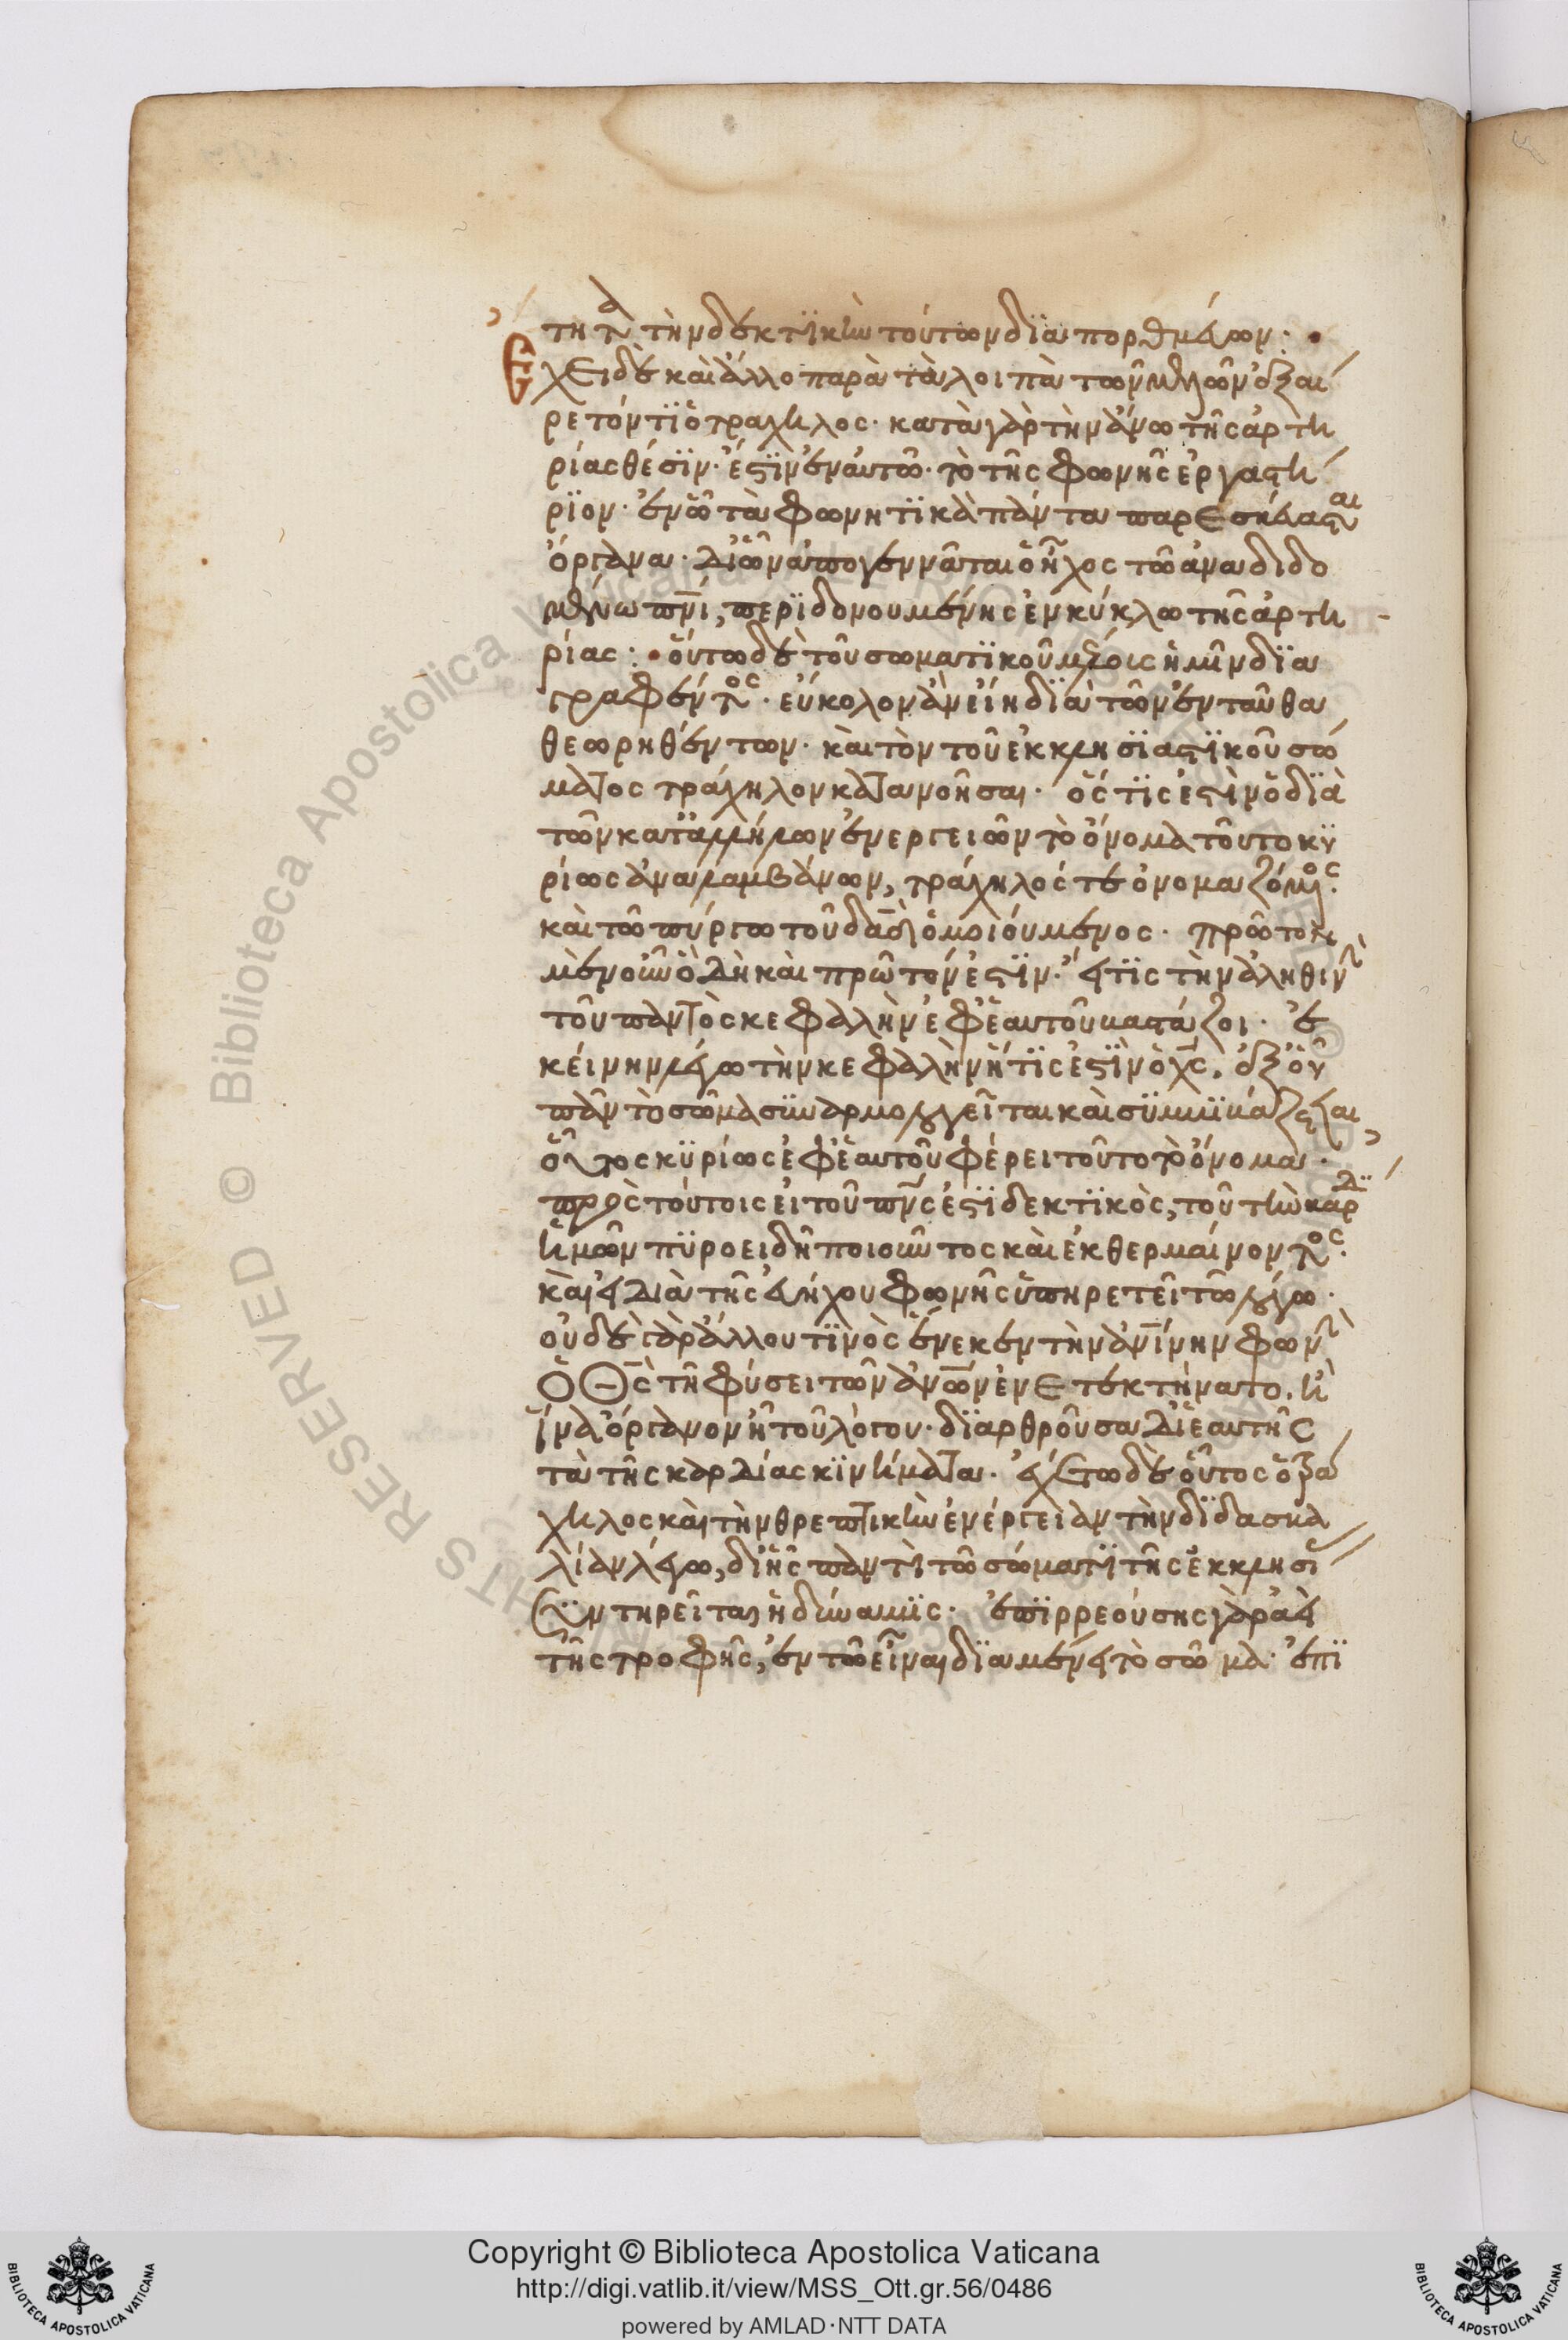 τητα τὴν δεκτικὴν τούτων διαπορθμεύων·
Ἔχει δὲ καὶ ἄλλο παρὰ τὰ λοιπὰ τῶν μελῶν ἐξαί
ρετόν τι ὁ τράχηλος· κατὰ γὰρ τὴν ἄνω τῆς ἀρτη
ρίας θέσιν· ἔστιν ἐν αὐτῷ· τὸ τῆς φωνῆς ἐργαστή
ριον· ἐν ᾧ τὰ φωνητικὰ πάντα παρεσκεύασται
ὄργανα· δι' ὧν ἀπογεννᾶται ὁ ἦχος τῷ ἀναδιδο
μένω πνι, περιδονουμένης ἐν κύκλω τῆς ἀρτη
ρίας : οὕτω δὲ τοῦ σωματικοῦ μέρους ἡμῖν δια
γραφέντος· εὔκολον ἂν εἴη διὰ τῶν ἐνταῦθα
θεωρηθέντων· καὶ τὸν τοῦ ἐκκλησιαστικοῦ σώ
ματος τράχηλον κατανοῆσαι· ὅς τίς ἐστιν ὁ διὰ
τῶν καταλλήλων ἐνεργειῶν τὸ ὄνομα τοῦτο κυ
ρίως ἀναλαμβάνων, τράχηλός τε ὀνομαζόμενος·
καὶ τῷ πύργω τοῦ δαδ ὁμοιούμενος· πρῶτον
μὲν οὖν ὃ δὴ καὶ πρῶτόν ἐστιν· εἴ τις τὴν ἀληθινὴν
τοῦ παντὸς κεφαλὴν ἐφ' ἑαυτοῦ βαστάζοι· ἐ
κείνην λέγω τὴν κεφαλὴν ἥτις ἐστὶν ὁ χς, ἐξ οὗ
πᾶν τὸ σῶμα συναρμολογεῖται καὶ συμβιβάζεται,
οὗτος κυρίως ἐφ' ἑαυτοῦ φέρει τοῦτο τὸ ὄνομα·
πρὸς τούτοις εἰ τοῦ πνς ἐστι δεκτικὸς, τοῦ τὴν καρδι
ἡμῶν πυροειδῆ ποιοῦντος καὶ ἐκθερμαίνοντος·
καὶ εἰ διὰ τῆς εὐήχου φωνῆς ὑπηρετεῖ τῷ λόγω·
οὐδὲ γὰρ ἄλλου τινὸς ἕνεκεν τὴν ἀνίνην φωνὴν
ὁ Θς τῇ φύσει τῶν ἀνων ἐνετεκτήνατο, ἢ
ἵνα ὄργανον ᾖ τοῦ λόγου· διαρθροῦσα δι' ἑαυτῆς
τὰ τῆς καρδίας κινήματα· ἐχέτω δὲ οὗτος ὁ τρά
χηλος καὶ τὴν θρεπτικὴν ἐνέργειαν τὴν διδασκα
λίαν λέγω, δι' ἧς παντὶ τῷ σώματι τῆς ἐκκλησί
συντηρεῖται ἡ δύναμις· ἐπιρρεούσης γὰρ ἀεὶ
τῆς τροφῆς, ἐν τῷ εἶναι διαμένει τὸ σῶμα· ἐπι
Copyright © Biblioteca Apostolica Vaticana
http://digi.vatlib.it/view/MSS_Ott.gr.56/0486
powered by AMLAD·NTT DATA
BIBLIOTECA APOSTOLICA VATICANA
BIBLIOTECA APOSTOLICA VATICANA